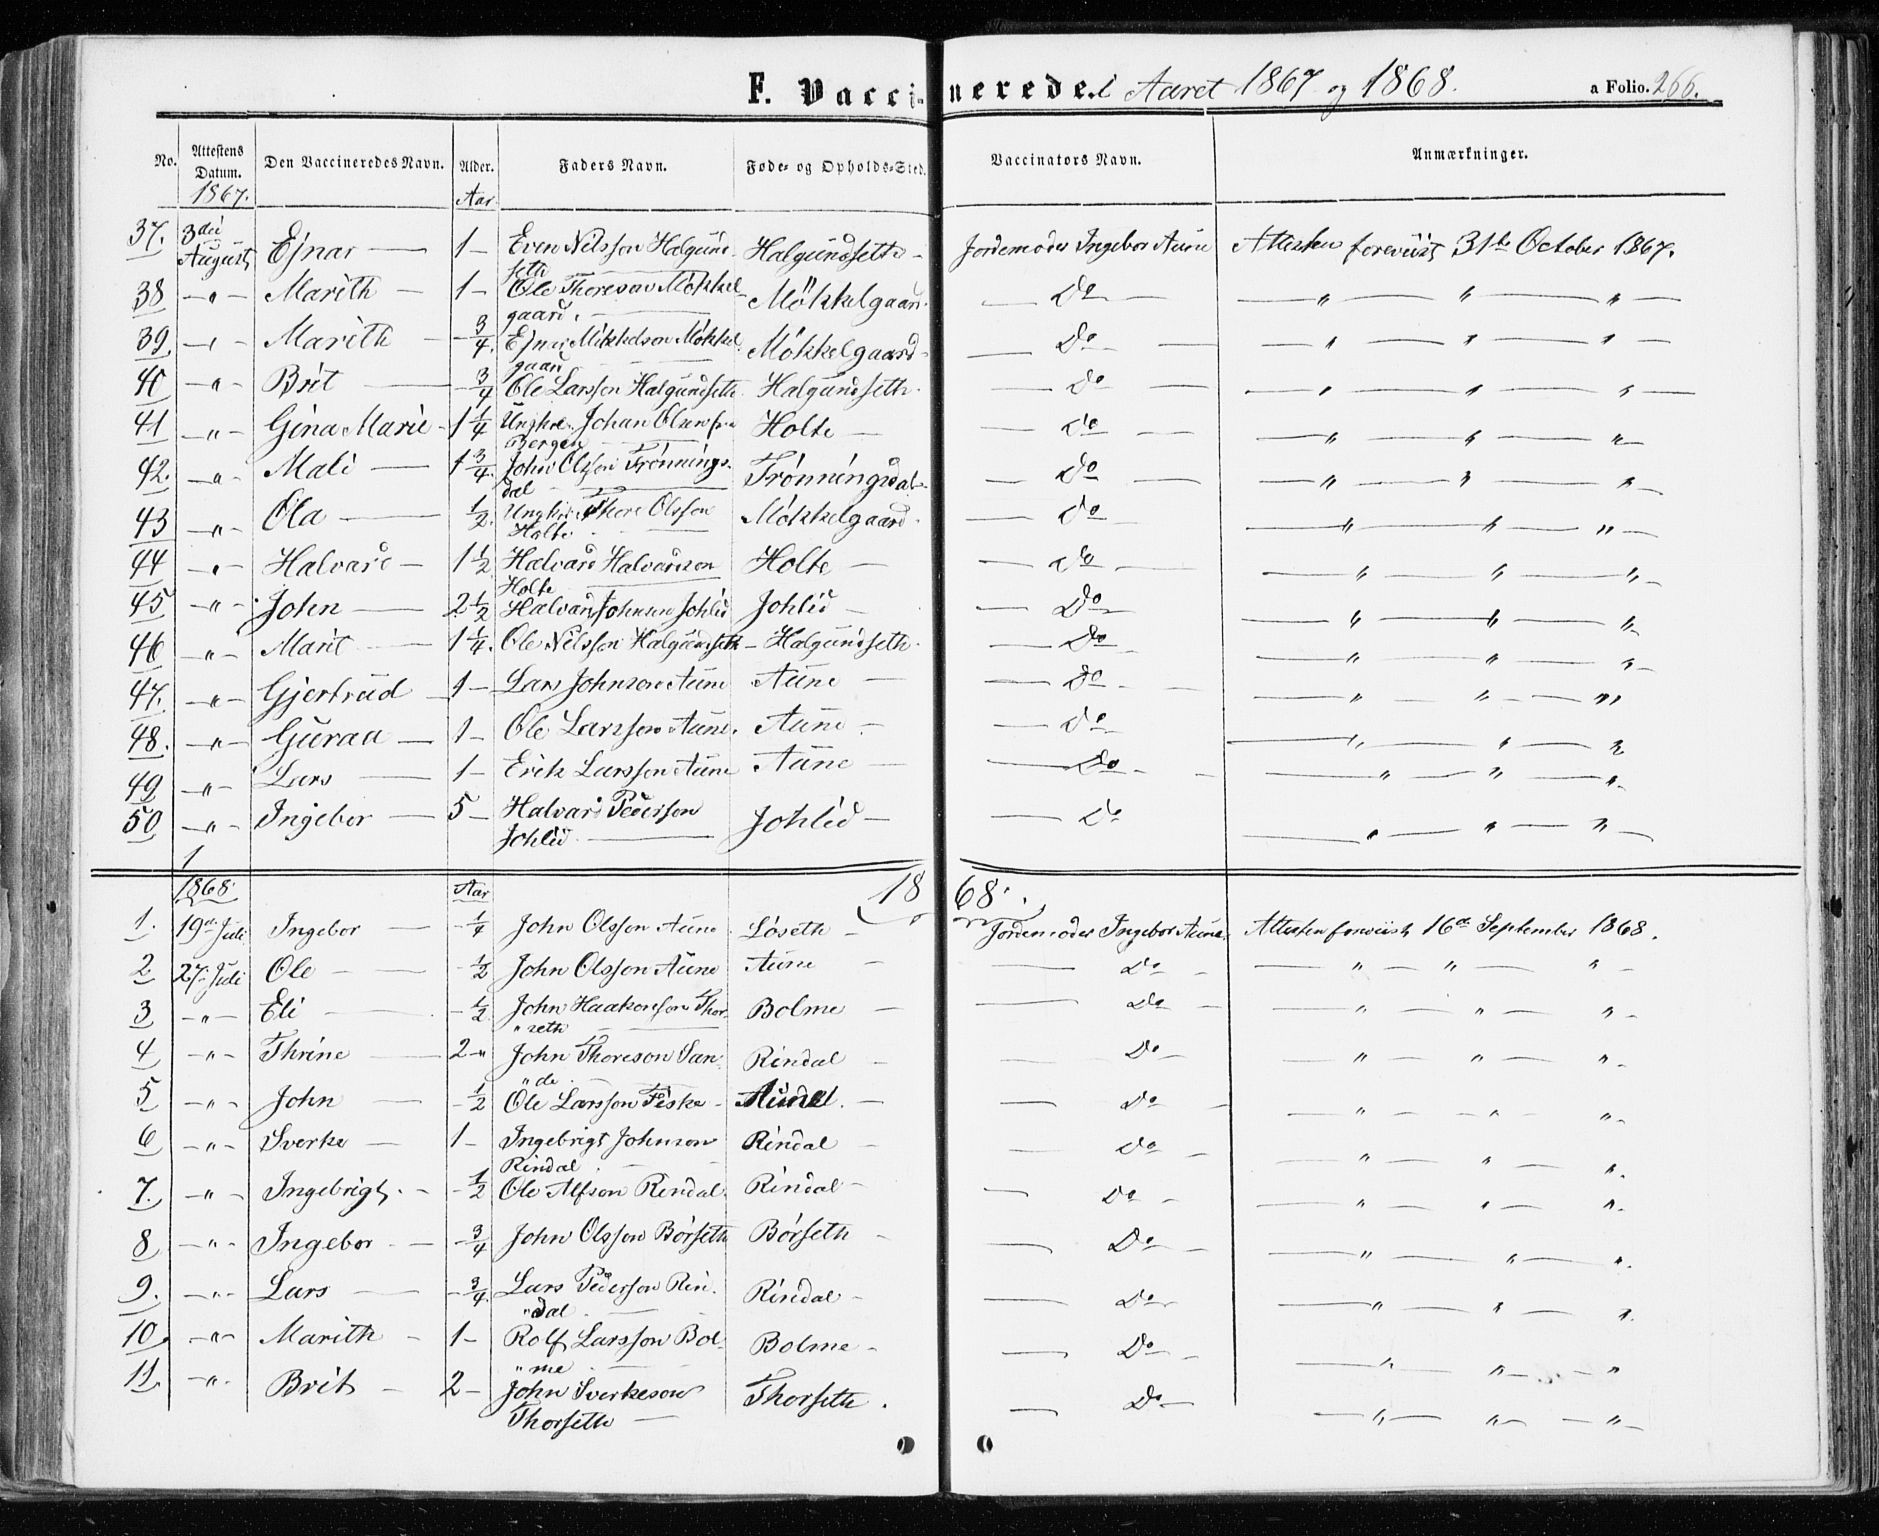 F. Vaccinerede. i Aaret 1867 og 1868. a Folio. 266.
No. Attestens Datum. Den Vaccineredes Navn. Alder. Faders Navn. Føde- og Opholds-Sted. Vaccinators Navn. Anmærkninger.
1867. Aar
37. 3die August Ejnar — 1 — Even Nilsson Halgundseth Halgundseth — Jordemoder Ingebor Aune Attesten foreviist 31te October 1867.
38 — " — Marith — 1 — Ole Thoreson Møkkelgaard. Møkkelgaard. — Do — — " — " — " —
39. — " — Marith — 3/4. Ejner Mikkelson Møkkelgaard Møkkelgaard — — Do — — " — " — " —
40 — " — Brit — 3/4 Ole Larsson Halgundseth. Halgundseth. — Do — — " — " — " —
41 — " — Gina Marie — 1 1/4 Ungkrl. Johan Olsen fra Bergen Holte — — Do — — " — " — " —
42. — " — Mali — 1 3/4. John Olsson Trønningsdal Trønningsdal — — Do — — " — " — " —
43 — " — Ola — 1/2. Ungkrl. Thore Olsson Holte Møkkelgaard — Do — — " — " — " —
44 — " — Halvard — 1 1/2 Halvard Halvardson Holte Holte — — Do — — " — " — " —
45 — " — John — 2 1/2 Halvard Johnson Johlid Johlid — — Do — — " — " — " —
46 — " — Marit — 1 1/4. Ole Nilsson Halgundseth — Halgundseth. — Do — — " — " — " —
47. — " — Gjertrud — 1 — Lars Johnson Aune Aune — — Do — — " — " — " —
48. — " — Guraa — 1 — Ole Larsson Aune. Aune — — Do — — " — " — "
49 — " — Lars — 1 — Erik Larsson Aune Aune — — Do — — " — " — "
50 — " — Ingebor — 5 — Halvard Pederson Johlid — Johlid — — Do — " — " — " —
1868. Aar 1868.
1. 19de Juli Ingebor — 1/4 John Olsson Aune Løseth — Jordemoder Ingebor Aune. Attesten foreviist 16de September 1868.
2 27. Juli Ole — 1/2 John Olsson Aune Aune — — Do — — " — " — " —
3 — " — Eli — 1/2 John Haakonsson Thor"seth Bolme — — Do — — " — " — " —
4 — " — Thrine — 2 — " John Thoreson San"de Rindal — — Do — — " — " — " —
5 — " — John — 1/2 Ole Larsson Fiske — Aunel. — — Do — — " — " — " —
6 — " — Sverke — 1 — Ingebrigt Johnson Rindal Rindal — — Do — — " — " — "
7. — " — Ingebrigt. — 1/2 Ole Alfson Rindal. Rindal — — Do — — " — " — "
8 — " — Ingebor — 3/4 John Olsson Børseth Børseth — — Do — — " — " — "
9. — " — Lars — 3/4. Lars Pederson Rin"dal Rindal — — Do — — " — " — "
10. — " — Marith — 1 — Rolf Larsson Bol"me Bolme — — Do — — " — " — "
11. — " — Brit — 2 — John Sverkeson Thorseth — Thorseth. — Do — — " — " — " —